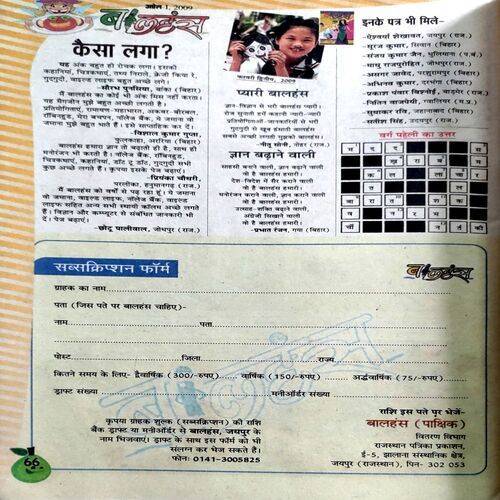 अप्रैल 1, 2009
बालहंस
कैसा लगा?
यह अंक बहुत ही रोचक लगा। इसकी
कहानियां, चित्रकथाएं, तथ्य निराले, क्रेजी किया रे,
गुदगुदी बहुत अच्छे लगे।
-सौरभ चुनसिया, बांका (बिहार)
मैं बालहंस का कोई भी अंक मिस नहीं करता।
यह मैगजीन मुझे बहुत अच्छी लगती है।
प्रतियोगिताएं, रामायण-महाभारत, अकबर-बीरबल
रॉबिनहुड, मेरा बचपन, नॉलेज बैंक, ये जमाना वो
जमाना मुझे बहुत भाते हैं। इसे साप्ताहिक कर दें।
-विशाल कुमार गुप्ता,
फुलकाहा, अररिया (बिहार)
बालहंस हमारा ज्ञान तो बढ़ाती ही है, साथ ही
मनोरंजन भी करती है। नॉलेज बैंक, रॉबिनहुड,
चित्रकथाएं, कहानियां, डॉ. हंस, गुदगुदी सभी
कुछ अच्छे लगते हैं। कृपया इसके पेज बढ़ाएं।
-प्रियंका चौधरी,
परलीका, हनुमानगढ़ (राज.)
मैं बालहंस को वर्षों से पढ़ रहा हूं। ये जमाना
वो जमाना, वाइल्ड लाइफ, नॉलेज बैंक, वाइल्ड
लाइफ सहित अन्य सभी स्थायी कॉलम अच्छे लगते
हैं। विज्ञान और कम्प्यूटर से संबंधित जानकारी भी
दें। पेज बढ़ाएं।
-छोटू पालीवाल, जोधपुर (राज.)
फरवरी द्वितीय, 2009
प्यारी बालहंस
ज्ञान-विज्ञान से भरी बालहंस प्यारी।
रोज सुनाती हमें कहानी न्यारी-न्यारी
प्रतियोगिताओं-जानकारियों से भरी
गुदगुदी से खूब हंसाती बालहंस
सबसे अच्छी लगती मुझको बालहंस।
-नीतू सोनी, नोहर (राज.)
ज्ञान बढ़ाने वाली
सबकी बताने वाली, ज्ञान बढ़ाने वाली
वो है बालहंस हमारी।
देश-विदेश में सैर कराने वाली
वो है बालहंस हमारी।
मनोरंजन कराने वाली, ज्ञान कराने वाली
वो है बालहंस हमारी।
उत्साह-शक्ति बढ़ाने वाली,
अंग्रेजी सिखाने वाली
वो है बालहंस हमारी।
-प्रभात रंजन, गया (बिहार)
इनके पत्र भी मिले-
-ऐश्वर्या शेखावत, जयपुर (राज.)
-सूरज कुमार, सिवान (बिहार)
-संजय कुमार जैन, धुलियान (प.बं.)
-माधु राजपुरोहित, जोधपुर (राज.)
-असगर आवेद, परसुरामपुर (बिहार)
-अभिनव कुमार, दरभंगा (बिहार)
-प्रकाश पंवार बिश्नोई, बाड़मेर (राज.)
-नितिन बाजपेयी, ग्वालियर (म.प्र.)
-सुधाकर रवि, जहानाबाद (बिहार)
-सतीश सिंह, उदयपुर (राज.)
वर्ग पहेली का उत्तर
सब्सक्रिप्शन फॉर्म
बालहंस
ग्राहक का नाम
पता (जिस पते पर बालहंस चाहिए)-
नाम पता
पोस्ट जिला राज्य
कितने समय के लिए- द्वैवार्षिक (300/-रुपए) वार्षिक (150/-रुपए) अर्द्धवार्षिक (75/-रुपए)
ड्राफ्ट संख्या मनीऑर्डर संख्या
बालहंस
कृपया ग्राहक शुल्क (सब्सक्रिप्शन) की राशि
बैंक ड्राफ्ट या मनीऑर्डर से बालहंस, जयपुर के
नाम भिजवाएं। ड्राफ्ट के साथ इस फॉर्म को भी
संलग्न कर भेज सकते हैं।
फोन: 0141-3005825
राशि इस पते पर भेजें-
बालहंस (पाक्षिक)
वितरण विभाग
राजस्थान पत्रिका प्रकाशन,
ई-5, झालाना संस्थानिक क्षेत्र,
जयपुर (राजस्थान), पिन- 302 053
66